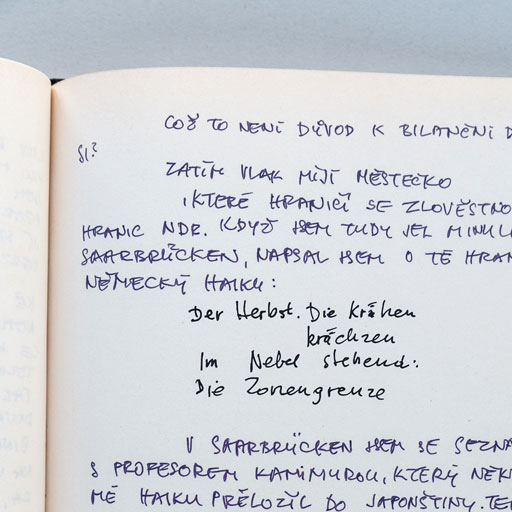 COŽ TO NENÍ DŮVOD K BILANČNÍ D
SI?
ZATÍM VLAK MÍJÍ MĚSTEČKO
, KTERÉ HRANIČÍ SE ZLOVĚSTNO
HRANIC NDR. KDYŽ JSEM TUDY JEL MINUL
SAARBRÜCKEN, NAPSAL JSEM O TÉ HRAN
NĚMECKÝ HAIKU:
Der Herbst. Die Krähen
krächzen
Im Nebel stehend:
Die Zonengrenze
V SAARBRÜCKEN JSEM SE SEZNA
S PROFESOREM KAMIMUROU, KTERÝ NĚK
MÉ HAIKU PŘELOŽIL DO JAPONŠTINY. TEN